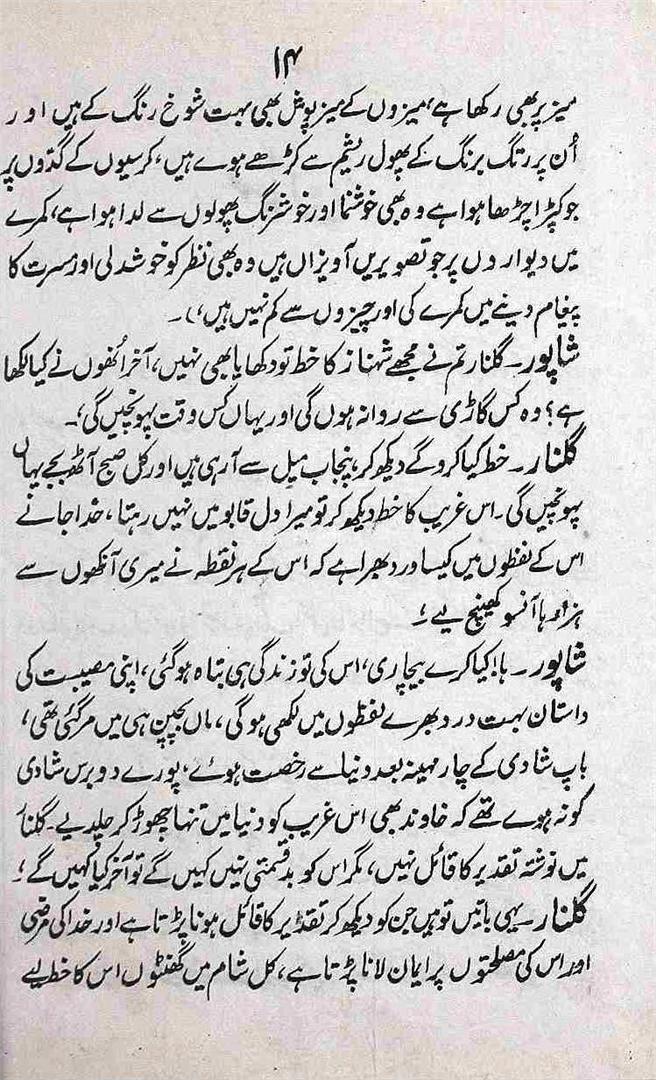 ۱۴
میز پر بھی رکھا ہے، میزوں کے میز پوش بھی بہت شوخ رنگ کے ہیں اور
اُن پر رنگ برنگ کے پھول ریشم سے کڑھے ہوے ہیں، کرسیوں کے گدّوں پر
جو کپڑا چڑھا ہوا ہے وہ بھی خوشنما اور خوشرنگ پھولوں سے لدا ہوا ہے، کمرے
میں دیواروں پر جو تصویریں آویزاں ہیں وہ بھی نظر کو خوشدلی اور مسرت کا
پیغام دینے میں کمرے کی اور چیزوں سے کم نہیں ہیں،)۔
شاپور۔ گلنار تم نے مجھے شہناز کا خط تو دکھایا بھی نہیں، آخر اُنھوں نے کیا لکھا
ہے؟ وہ کس گاڑی سے روانہ ہوں گی اور یہاں کس وقت پہونچیں گی؟۔
گلنار۔ خط کیا کروگے دیکھ کر، پنجاب میل سے آرہی ہیں اور کل صبح آٹھ بجے یہاں
پہونچیں گی۔ اس غریب کا خط دیکھ کر تو میرا دل قابو میں نہیں رہتا، خدا جانے
اس کے لفظوں میں کیسا درد بھرا ہے کہ اس کے ہر نقطہ نے میری آنکھوں سے
ہزارہا آنسو کھینچ لیے!
شاپور۔ ہا! کیا کرے بیچاری، اس کی تو زندگی ہی تباہ ہوگئی، اپنی مصیبت کی
داستان بہت درد بھرے لفظوں میں لکھی ہوگی، ماں بچپن ہی میں مرگئی تھی،
باپ شادی کے چار مہینہ بعد دنیا سے رخصت ہوئے، پورے دو برس شادی
کو نہ ہوے تھے کہ خاوند بھی اس غریب کو دنیا میں تنہا چھوڑ کر چلدیے۔ گلنار
میں نوشتہ تقدیر کا قائل نہیں، مگر اس کو بدقسمتی نہیں کہیں گے تو آخر کیا کہیں گے!
گلنار۔ یہی باتیں تو ہیں جن کو دیکھ کر تقدیر کا قائل ہونا پڑتا ہے اور خدا کی مرضی
اور اس کی مصلحتوں پر ایمان لانا پڑتا ہے، کل شام میں گھنٹوں اس کا خط لیے